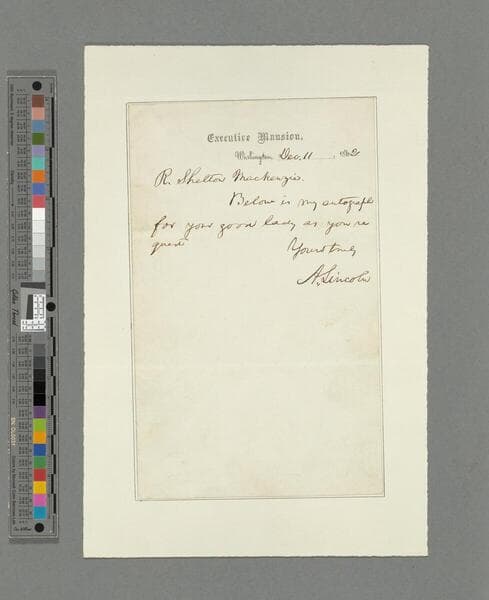 Executive Mansion,
Washington, Dec. 11, 186
R. Shelton Mackenzie.
Below is my autograph
for your good lady as you re
quest
Yours truly
A. Lincoln